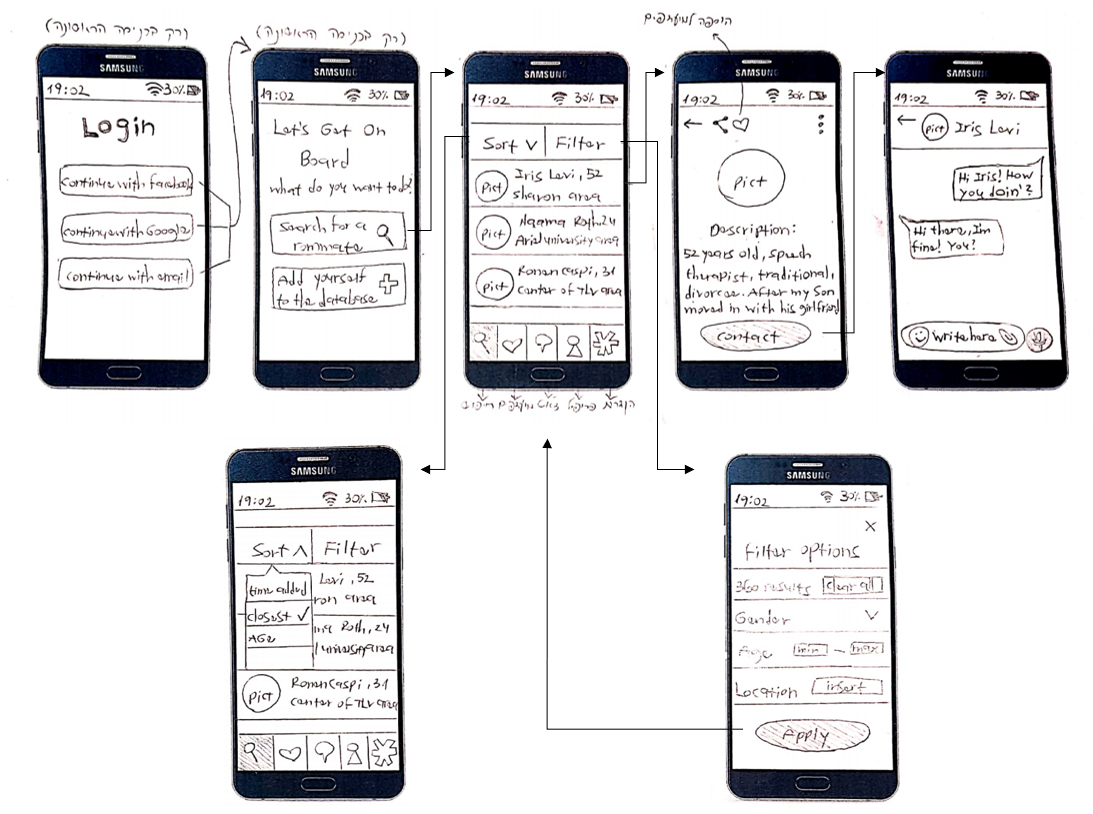 (רק בכניסה הראשונה)
SAMSUNG
19:02 30%
Login
continue with facebook
continue with Google
continue with email
(רק בכניסה הראשונה)
SAMSUNG
19:02 30%
Let's Get On
Board
what do you want to do?
Search for a
rommate
Add yourself
to the database
SAMSUNG
19:02 30%
Sort Filter
Pict
Iris Levi, 52
sharon area
Pict
Naama Roth, 24
Ariel university area
Pict
Ronen Caspi, 31
center of TLV area
חיפוש מועדפים צ'אט פרופיל הגדרות
הוספה למועדפים
SAMSUNG
19:02 30%
Pict
Description:
52 years old, speech
therapist, traditional,
divorcee. After my son
moved in with his girlfriend
contact
SAMSUNG
19:02 30%
Pict Iris Levi
Hi Iris! How
you doin'?
Hi there, I'm
fine! You?
Write here
SAMSUNG
19:02 30%
Sort Filter
time added
closest ✓
AGe
Levi, 52
ron area
ma Roth, 24
university area
Pict
Ronen Caspi, 31
center of TLV area
SAMSUNG
19:02 30%
X
Filter options
360 results clear all
Gender
Age min - max
Location insert
Apply